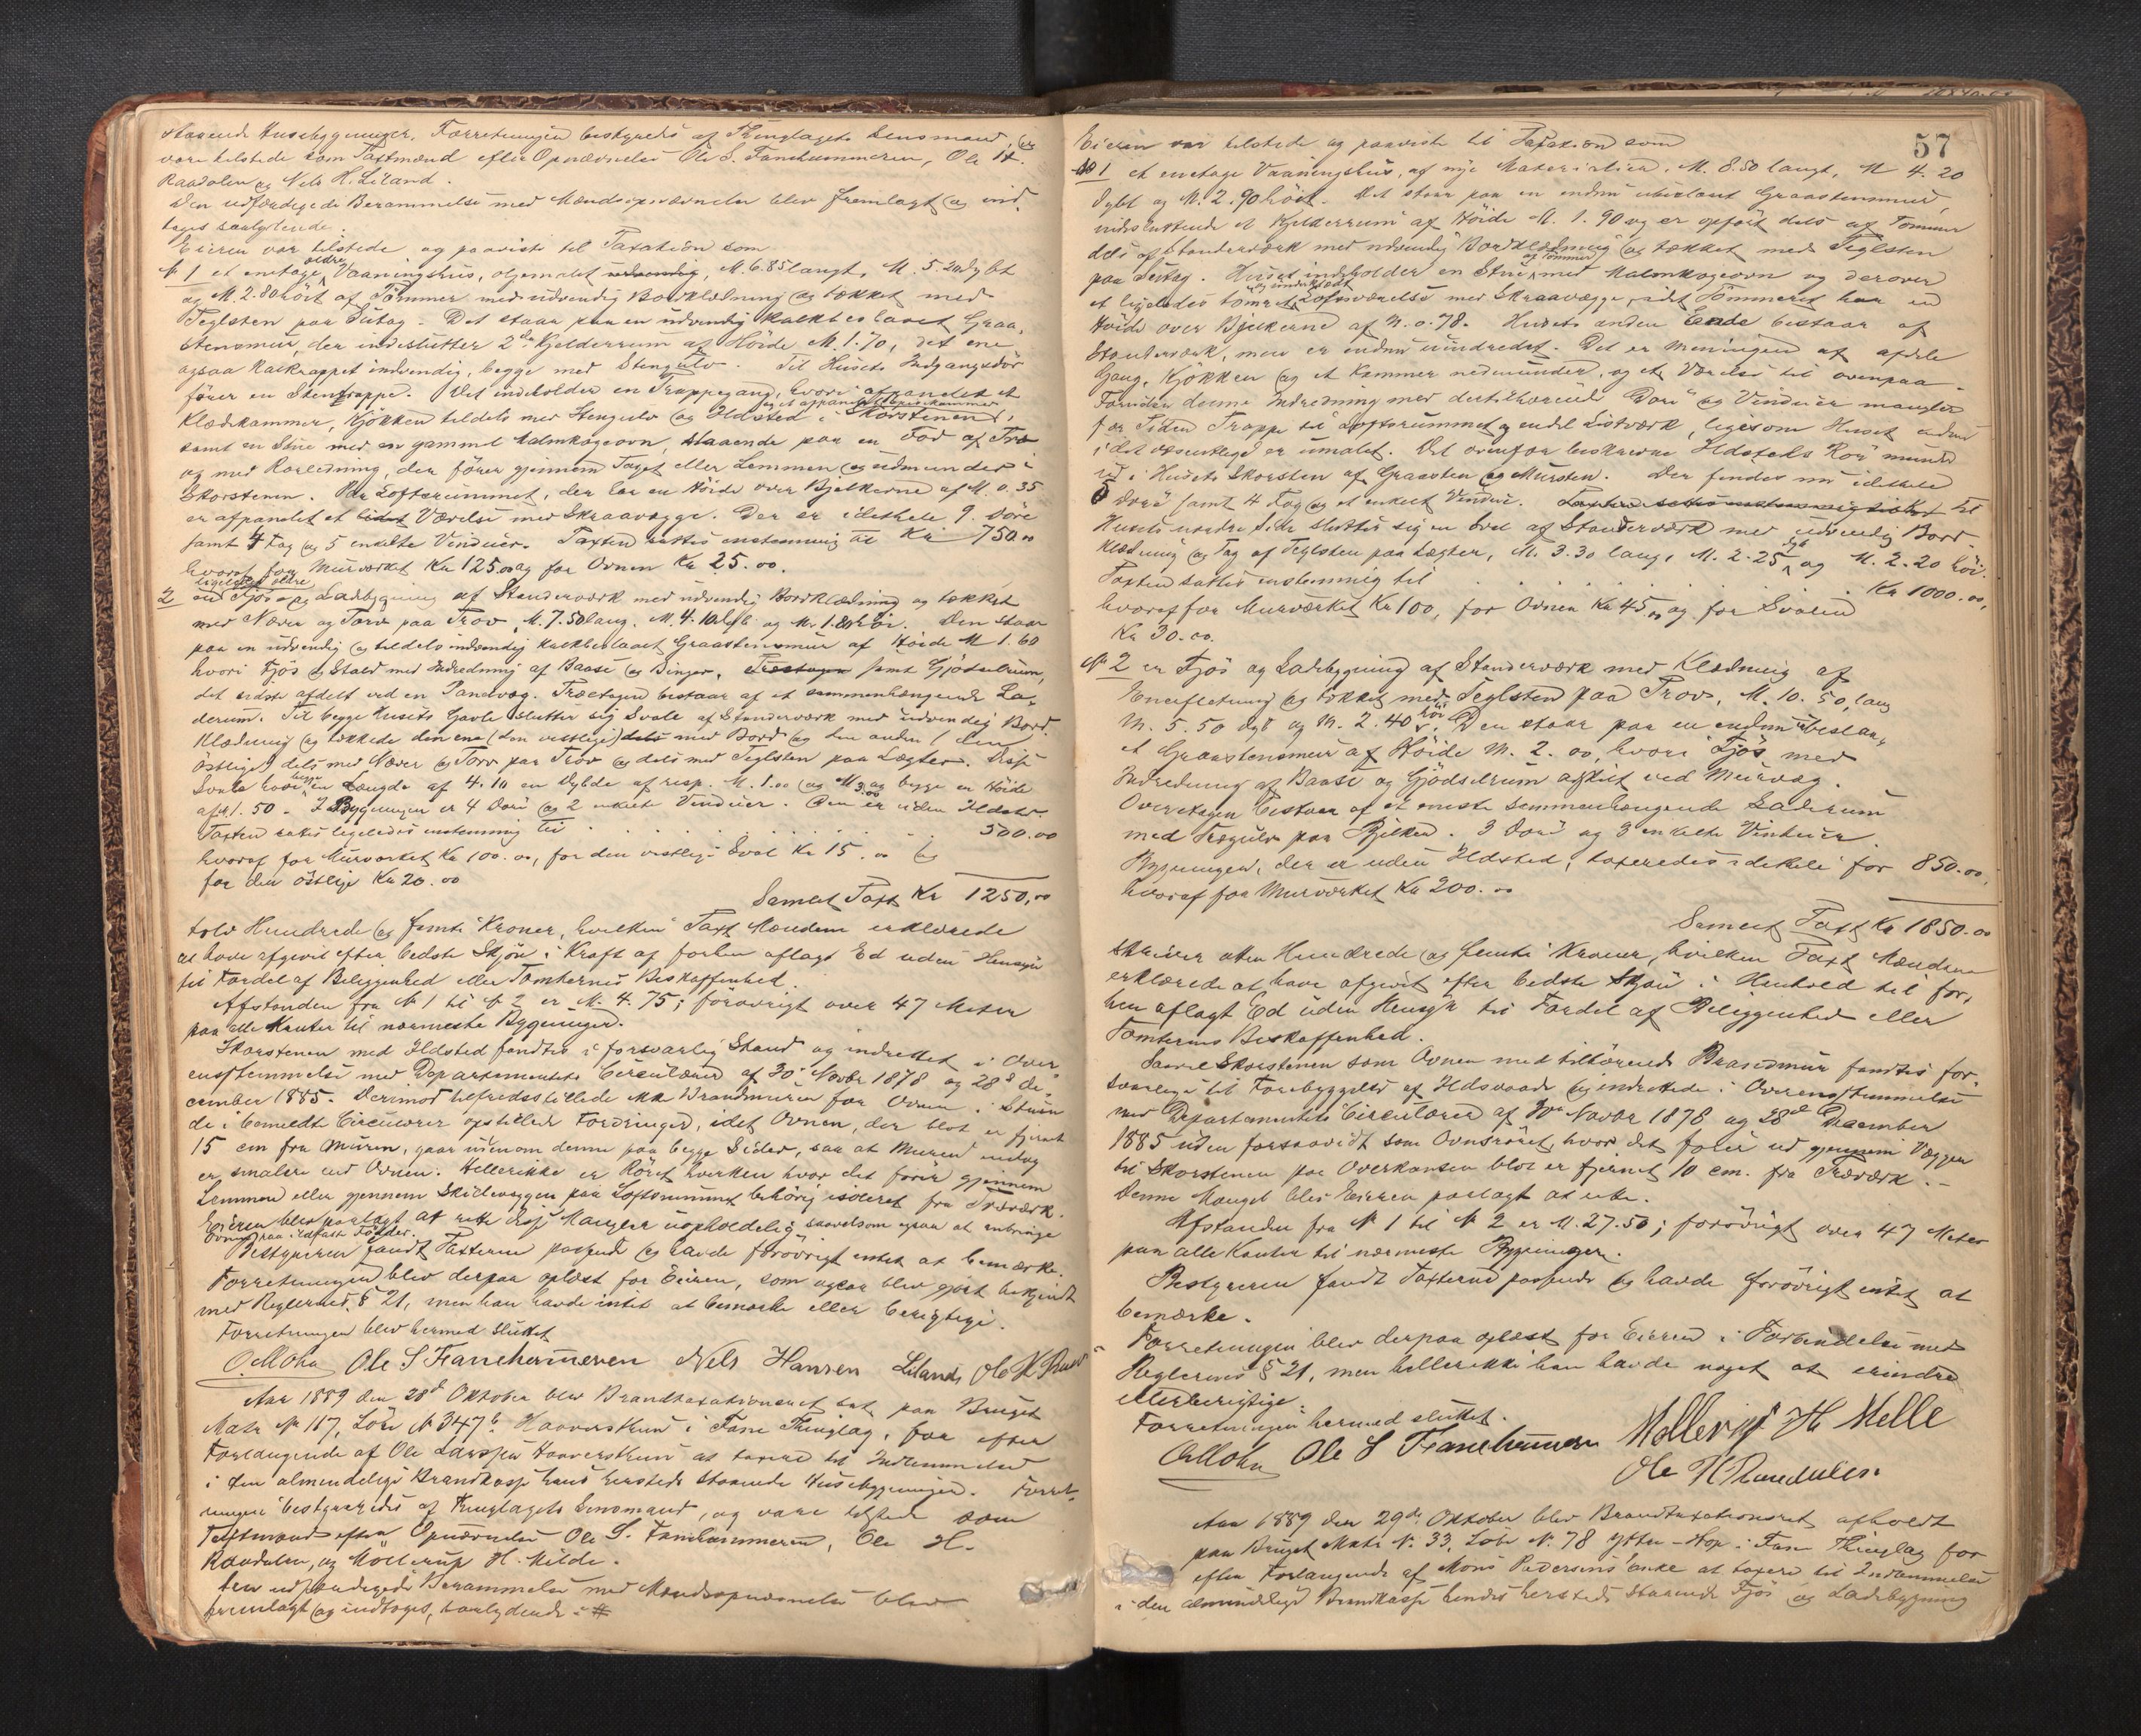 staaende Husebygninger. Forretningen bestyredes af Thinglagets Lensmand og
vare tilstede som Taxtmænd efter Opnævnelse Ole S. Fanehammeren, Ole H.
Raadalen og Nels H. Liland.
Den udfærdigede Berammelse med Mændsopnævnelse blev fremlagt og ind,
toges saalydende.
Eieren var tilstede og paaviste til Taxation som
№ 1 et enetage ældre Vaaningshus, oljemalet udvendig, M. 6.85 langt, M. 5.20 dybt
og M. 2.80 høit af Tømmer med udvendig Bordklædning og tækket med
Teglsten paa Sutag. Det staar paa en udvendig kalkbeslaaet Graa,
stensmur, der indeslutter 2de Kjelderrum af Høide M. 1.70, det ene
ogsaa kalkrappet indvendig, begge med Stengulv. Til Husets Indgangsdør
fører en Stentrappe. Det indeholder en Trappegang, hvori afpanelet et
Klædekammer, Kjøkken tildels med Stengulv og Ildsted i Skorstenen,
samt en Stue med en gammel Kakkelovn, staaende paa en Fod af Træ
og med Rørledning, der fører gjennem Taget eller Lemmen og udmunder i
Skorstenen. Paa Loftsrummet, der har en Høide over Bjelkerne af M. 0.35
er afpanelet et lidet Værelse med Skraavægge. Der er idethele 9 Døre
samt 4 Fag og 5 enkelte Vinduer. Taxten sattes enstemmig til Kr 750.00
hvoraf for Murværket Kr 125.00 og for Ovnen Kr 25.00.
2 en ligeledes ældre Fjøs og Ladebygning af Stenderværk med udvendig Bordklædning og tækket
med Næver og Torv paa Trov, M. 7.50 lang, M. 4.10 dyb og M. 1.80 høi. Den staar
paa en udvendig og tildels indvendig kalkbeslaaet Graastensmur af Høide M 1.60
hvori Fjøs og Stald med Indredning af Baase og Binger, Træetagen samt Gjødselrum,
det sidste afdelt ved en Panelvæg. Træetagen bestaar af et sammenhængende La,
derum. Til begge Husets Gavle slutter sig Svale af Stenderværk med udvendig Bord
Klædning og tækkede den ene (den vestlige) dels med Bord og den anden (den
østlige) dels med Næver og Torv paa Trov og dels med Teglsten paa Lægter. Disse
Svale have begge en Længde af 4.10 en Dybde af resp. M. 1.00 og M 3.00 og begge en Høide
af M. 1.50. I Bygningen er 4 Døre og 2 enkelte Vinduer. Den er uden Ildsted.
Taxten sattes ligeledes enstemmig til . . . . . . . . . . 500.00
hvoraf for Murværket Kr 100.00, for den vestlige Sval Kr 15.00 og
for den østlige Kr 20.00
Samlet Taxt Kr 1250,00
tolv Hundrede og femti Kroner, hvilken Taxt Mændene erklærede
at have afgivet efter bedste Skjøn i Kraft af forhen aflagt Ed uden Hensyn
til Fordel af Beliggenhed eller Tomternes Beskaffenhed.
Afstanden fra № 1 til № 2 er M. 4.75; forøvrigt over 47 Meter
paa alle Kanter til nærmeste Bygninger.
Skorstenen med Ildsted fandtes i forsvarlig Stand og indrettet i Over,
ensstemmelse med Departementets Circulærer af 30te Novbr 1878 og 28de De,
cember 1885. Derimod tilfredsstillede ikke Brandmuren for Ovnen i Stuen
de i bemeldte Circulærer opstillede Fordringer, idet Ovnen, der blot er fjernet
15 cm fra Muren, gaar udenom denne paa begge Sider, saa at Muren endog
er smalere end Ovnen. Hellerikke er Røret hverken hvor det fører gjennem
Lemmen eller gjennem Skillevæggen paa Loftsrummet behørig isoleret fra Træværk.
Eieren blev paalagt at rette disse Mangler uopholdelig saavelsom ogsaa at anbringe
Ovnen paa ildfast Fødder.
Bestyreren fandt Taxterne passende og havde forøvrigt intet at bemærke.
Forretningen blev derpaa oplæst for Eieren, som ogsaa blev gjort bekjendt
med Reglernes § 21, men han havde intet at bemærke eller berigtige.
Forretningen blev hermed sluttet
O Mohn Ole S Fanehammeren Nels Hansen Liland Ole H Raad
Aar 1889 den 28de Oktober blev Brandtaxationsret sat paa Bruget
Matr № 117, Løbe № 347b Haaverstrun i Fane Thinglag, for efter
Forlangende af Ole Larssen Haaverstrun at taxere til Indlemmelse
i den almindelige Brandkasse hans hersteds staaende Husebygninger. Forret,
ningen bestyredes af Thinglagets Lensmand, og vare tilstede som
Taxtmænd efter Opnævnelse Ole S. Fanehammeren, Ole H.
Raadalen, og Møllerup H. Milde.
Den udfærdigede Berammelse med Mændsopnævnelse blev
fremlagt og indtoges, saalydende: #
57
Eieren var tilstede og paaviste til Taxation som
№ 1 et enetage Vaaningshus, af nye Materialier, M. 8.50 langt, M 4.20
dybt og M. 2.90 høit. Det staar paa en endnu ubeslaaet Graastensmur,
indesluttende et Kjelderrum af Høide M. 1.90 og er opført dels af Tømmer
dels af Stenderværk med udvendig Bordklædning og tækket med Teglsten
paa Sutag. Huset indeholder en Stue af Tømmer med Kakkelovn og derover
et ligeledes tømret og underklædt Loftsværelse med Skraavægge, idet Tømmeret har en
Høide over Bjelkerne af M. 0.78. Husets anden Ende bestaar af
Stenderværk, men er endnu uindredet. Det er Meningen at afdele
Gang, Kjøkken og et Kammer nedenunder, og et Værelse til ovenpaa.
Foruden denne Indredning med dertilhørende Døre og Vinduer mangler
for Tiden Trappe til Loftsrummet og endel Listværk, ligesom Huset endnu
i det væsentlige er umalet. Det ovenfor beskrevne Ildsteds Rør munder
ud i Husets Skorsten af Graasten og Mursten. Der findes nu idethele
Døre samt 4 Fag og et enkelt Vindue. Taxten sattes enstemmig til Kr Til
Husets nordre Side slutter sig en Sval af Stenderværk med udvendig Bord
klædning og Tag af Teglsten paa Lægter, M. 3.30 lang, M. 2.25 dyb og M. 2.20 høi.
Taxten sattes enstemmig til . . . . . . . Kr 1000.00,
hvoraf for Murværket Kr 100, for Ovnen Kr 45,00 og for Svalen
Kr 30.00.
№ 2 en Fjøs og Ladebygning af Stenderværk med Klædning af
Eneflætning og tækket med Teglsten paa Trov, M. 10.50, lang
M. 5.50 dyb og M. 2.40 høi. Den staar paa en endnu ubeslaa,
et Graastensmur af Høide M. 2.00, hvori Fjøs med
Indredning af Baase og Gjødselrum afskilt ved Murvæg.
Overetagen bestaar af et eneste sammenhængende Laderum
med Trægulv paa Bjelker. 3 Døre og 3 enkelte Vinduer.
Bygningen, der er uden Ildsted, taxeredes idethele for 850.00,
hvoraf for Murværket Kr 200.00
Samlet Taxt Kr 1850.00
skriver atten Hundrede og femti Kroner, hvilken Taxt Mændene
erklærede at have afgivet efter bedste Skjøn i Henhold til for,
hen aflagt Ed uden Hensyn til Fordel af Beliggenhed eller
Tomternes Beskaffenhed.
Saavel Skorstenen som Ovnen med tilhørende Brandmur fandtes for,
svarlige til Forebyggelse af Ildsvaade og indrettede i Overensstemmelse
med Departementets Circulærer af 30te Novbr 1878 og 28de December
1885 uden forsaavidt som Ovnsrøret, hvor det fører ud gjennem Væggen
til Skorstenen paa Overkanten blot er fjernet 10 cm. fra Træværk.
Denne Mangel blev Eieren paalagt at rette.
Afstanden fra № 1 til № 2 er M. 27.50; forøvrigt over 47 Meter
paa alle Kanter til nærmeste Bygninger.
Bestyreren fandt Taxterne passende og havde forøvrigt intet at
bemærke.
Forretningen blev derpaa oplæst for Eieren i Forbindelse med
Reglernes § 21, men hellerikke han havde noget at erindre
eller berigtige.
Forretningen hermed sluttet.
O Mohn Ole S Fanehammeren Møllerup H Melle
Ole H Raadalen.
Aar 1889 den 29de Oktober blev Brandtaxationsret afholdt
paa Bruget Matr № 33, Løbe № 78 Ytter-Hop i Fane Thinglag for
efter Forlangende af Mons Pedersens Enke at taxere til Indlemmelse
i den almindelige Brandkasse hendes hersteds staaende Fjøs og Ladebygning